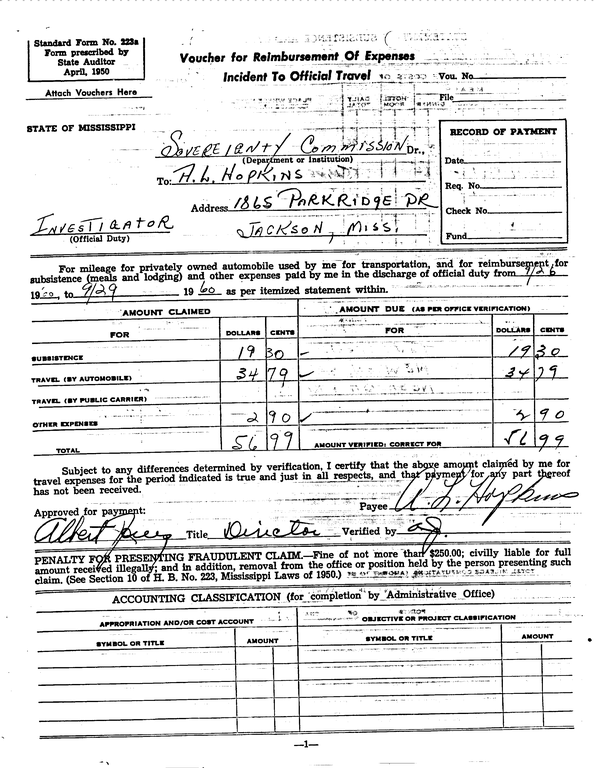 Standard Form No. 223a
Form prescribed by
State Auditor
April, 1950
Attach Vouchers Here
Voucher for Reimbursement Of Expenses
Incident To Official Travel
Vou. No.
File
STATE OF MISSISSIPPI
RECORD OF PAYMENT
Date
Req. No.
Check No.
Fund
SOVEREIGNTY COMMISSION Dr.,
(Department or Institution)
To: A. L. HOPKINS
Address 1865 PARKRIDGE DR
INVESTIGATOR JACKSON, MISS.
(Official Duty)
For mileage for privately owned automobile used by me for transportation, and for reimbursement for
subsistence (meals and lodging) and other expenses paid by me in the discharge of official duty from 9/26
1960, to 9/29 1960 as per itemized statement within.
AMOUNT CLAIMED AMOUNT DUE (AS PER OFFICE VERIFICATION)
FOR DOLLARS CENTS FOR DOLLARS CENTS
SUBSISTENCE 19 30 19 30
TRAVEL (BY AUTOMOBILE) 34 79 34 79
TRAVEL (BY PUBLIC CARRIER)
OTHER EXPENSES 2 90 2 90
TOTAL 56 99 AMOUNT VERIFIED: CORRECT FOR 56 99
Subject to any differences determined by verification, I certify that the above amount claimed by me for
travel expenses for the period indicated is true and just in all respects, and that payment for any part thereof
has not been received.
Payee A. L. Hopkins
Approved for payment:
Albert Jones Title Director Verified by
PENALTY FOR PRESENTING FRAUDULENT CLAIM.—Fine of not more than $250.00; civilly liable for full
amount received illegally; and in addition, removal from the office or position held by the person presenting such
claim. (See Section 10 of H. B. No. 223, Mississippi Laws of 1950.)
ACCOUNTING CLASSIFICATION (for completion by Administrative Office)
APPROPRIATION AND/OR COST ACCOUNT OBJECTIVE OR PROJECT CLASSIFICATION
SYMBOL OR TITLE AMOUNT SYMBOL OR TITLE AMOUNT
—1—